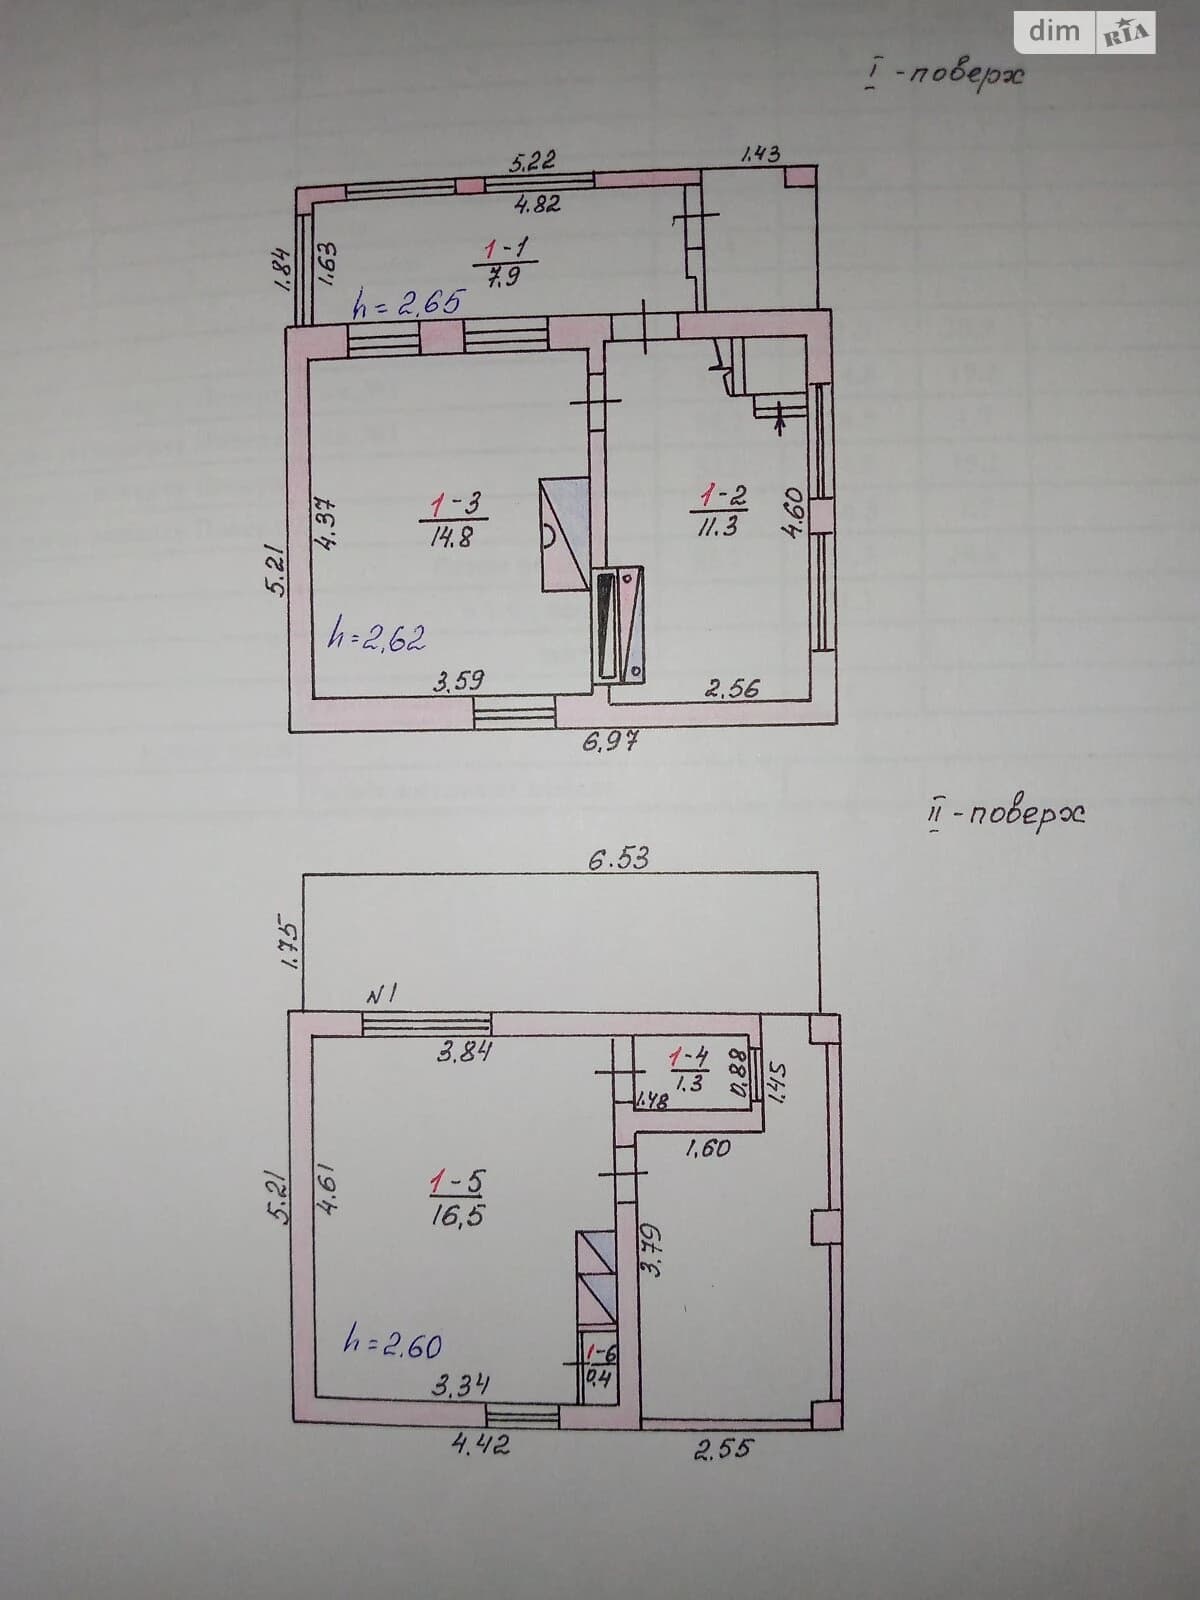 dim RIA
I -поверх
5.22
1.43
4.82
1.84
1.63
1-1
7.9
h=2.65
4.37
1-3
14.8
1-2
11.3
4.60
5.21
h=2,62
3.59
2.56
6.97
II -поверх
6.53
1.75
N1
3.84
1-4
1.3
0.88
1.45
1.48
1.60
5.21
4.61
1-5
16,5
3.79
h=2.60
1-6
0.4
3.34
4.42
2.55